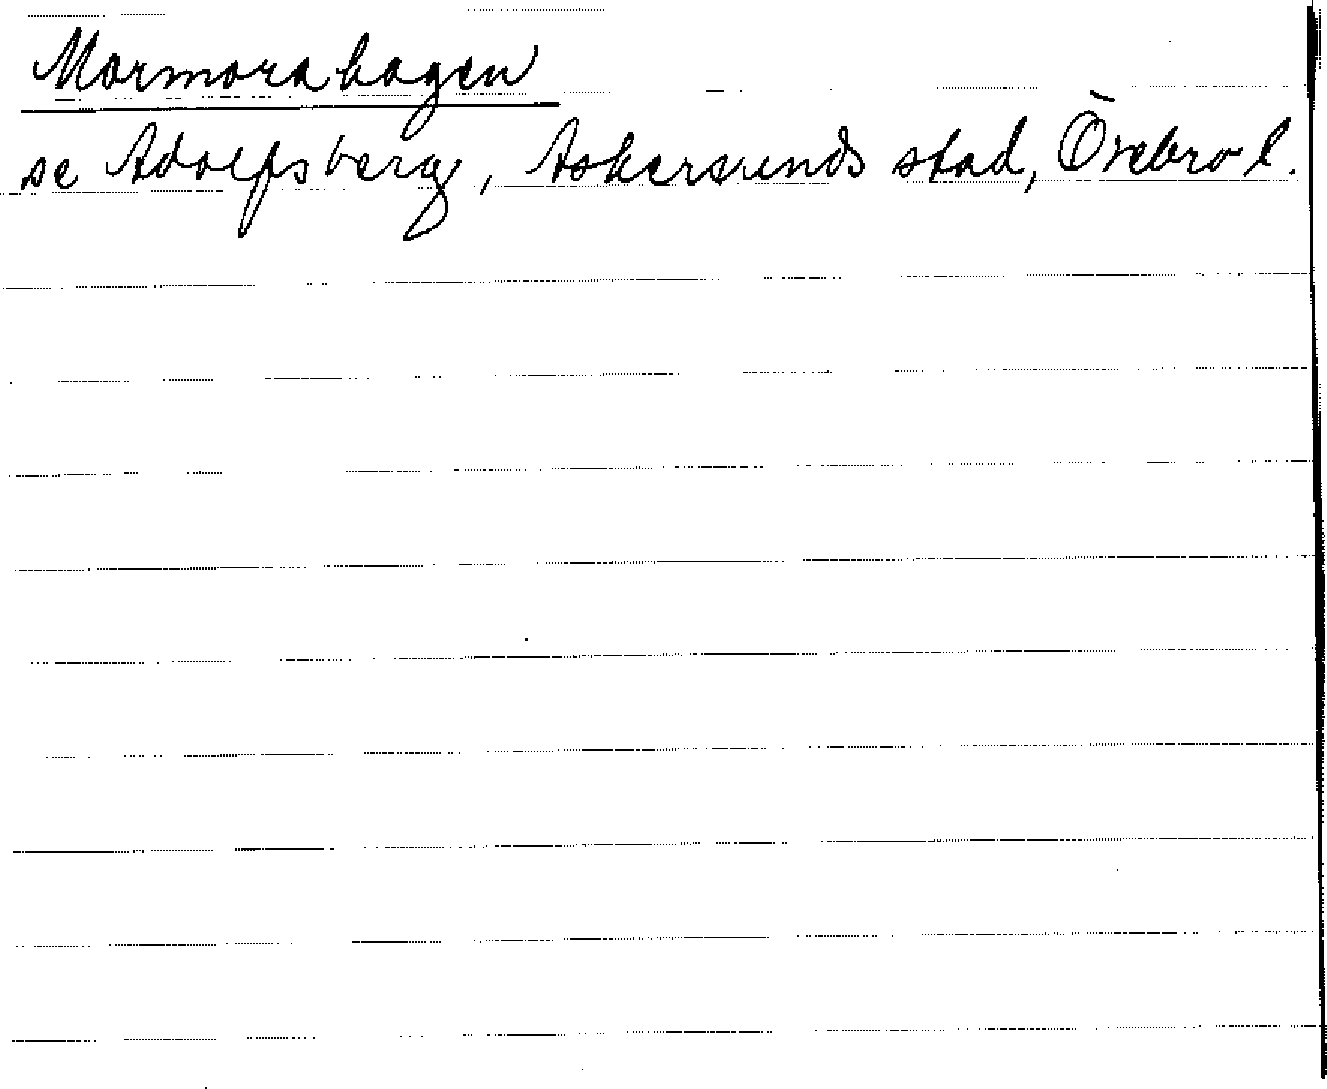 Mormorshagen
se Adolfsberg, Askersunds stad, Örebro l.